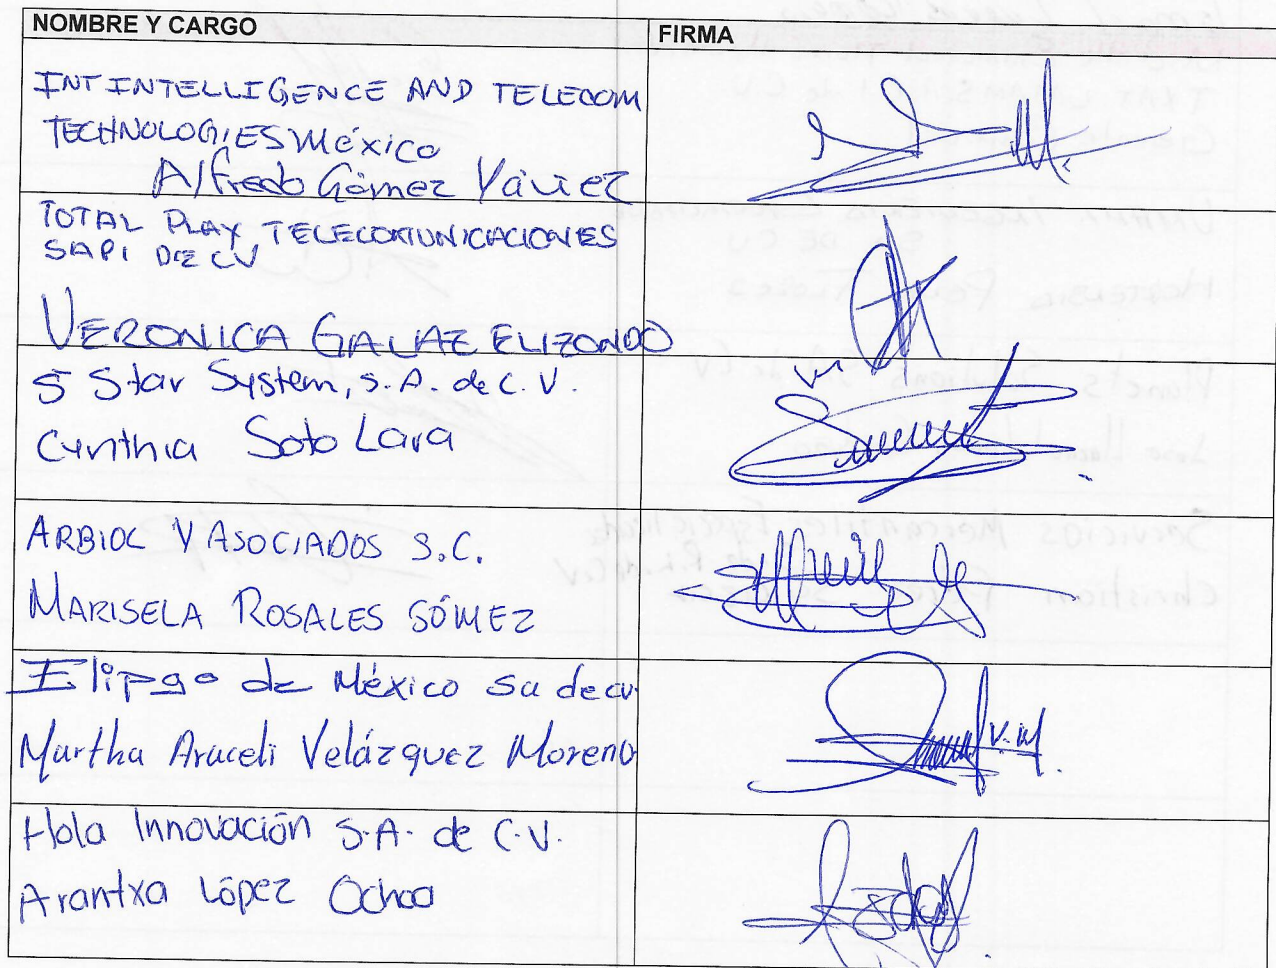 NOMBRE Y CARGO
FIRMA
INT INTELLIGENCE AND TELECOM
TECHNOLOGIES México
Alfredo Gómez
TOTAL PLAY TELECOMUNICACIONES
SAPI DE CV
VERONICA GALAZ ELIZONDO
5 Star System, S.A. de C.V.
Cynthia Soto Lara
ARBIOC Y ASOCIADOS S.C.
MARISELA ROSALES GÓMEZ
Elipgo de México sa de cv
Martha Araceli Velázquez Moreno
V.M.
Hola Innovación S.A. de C.V.
Arantxa López Ochoa